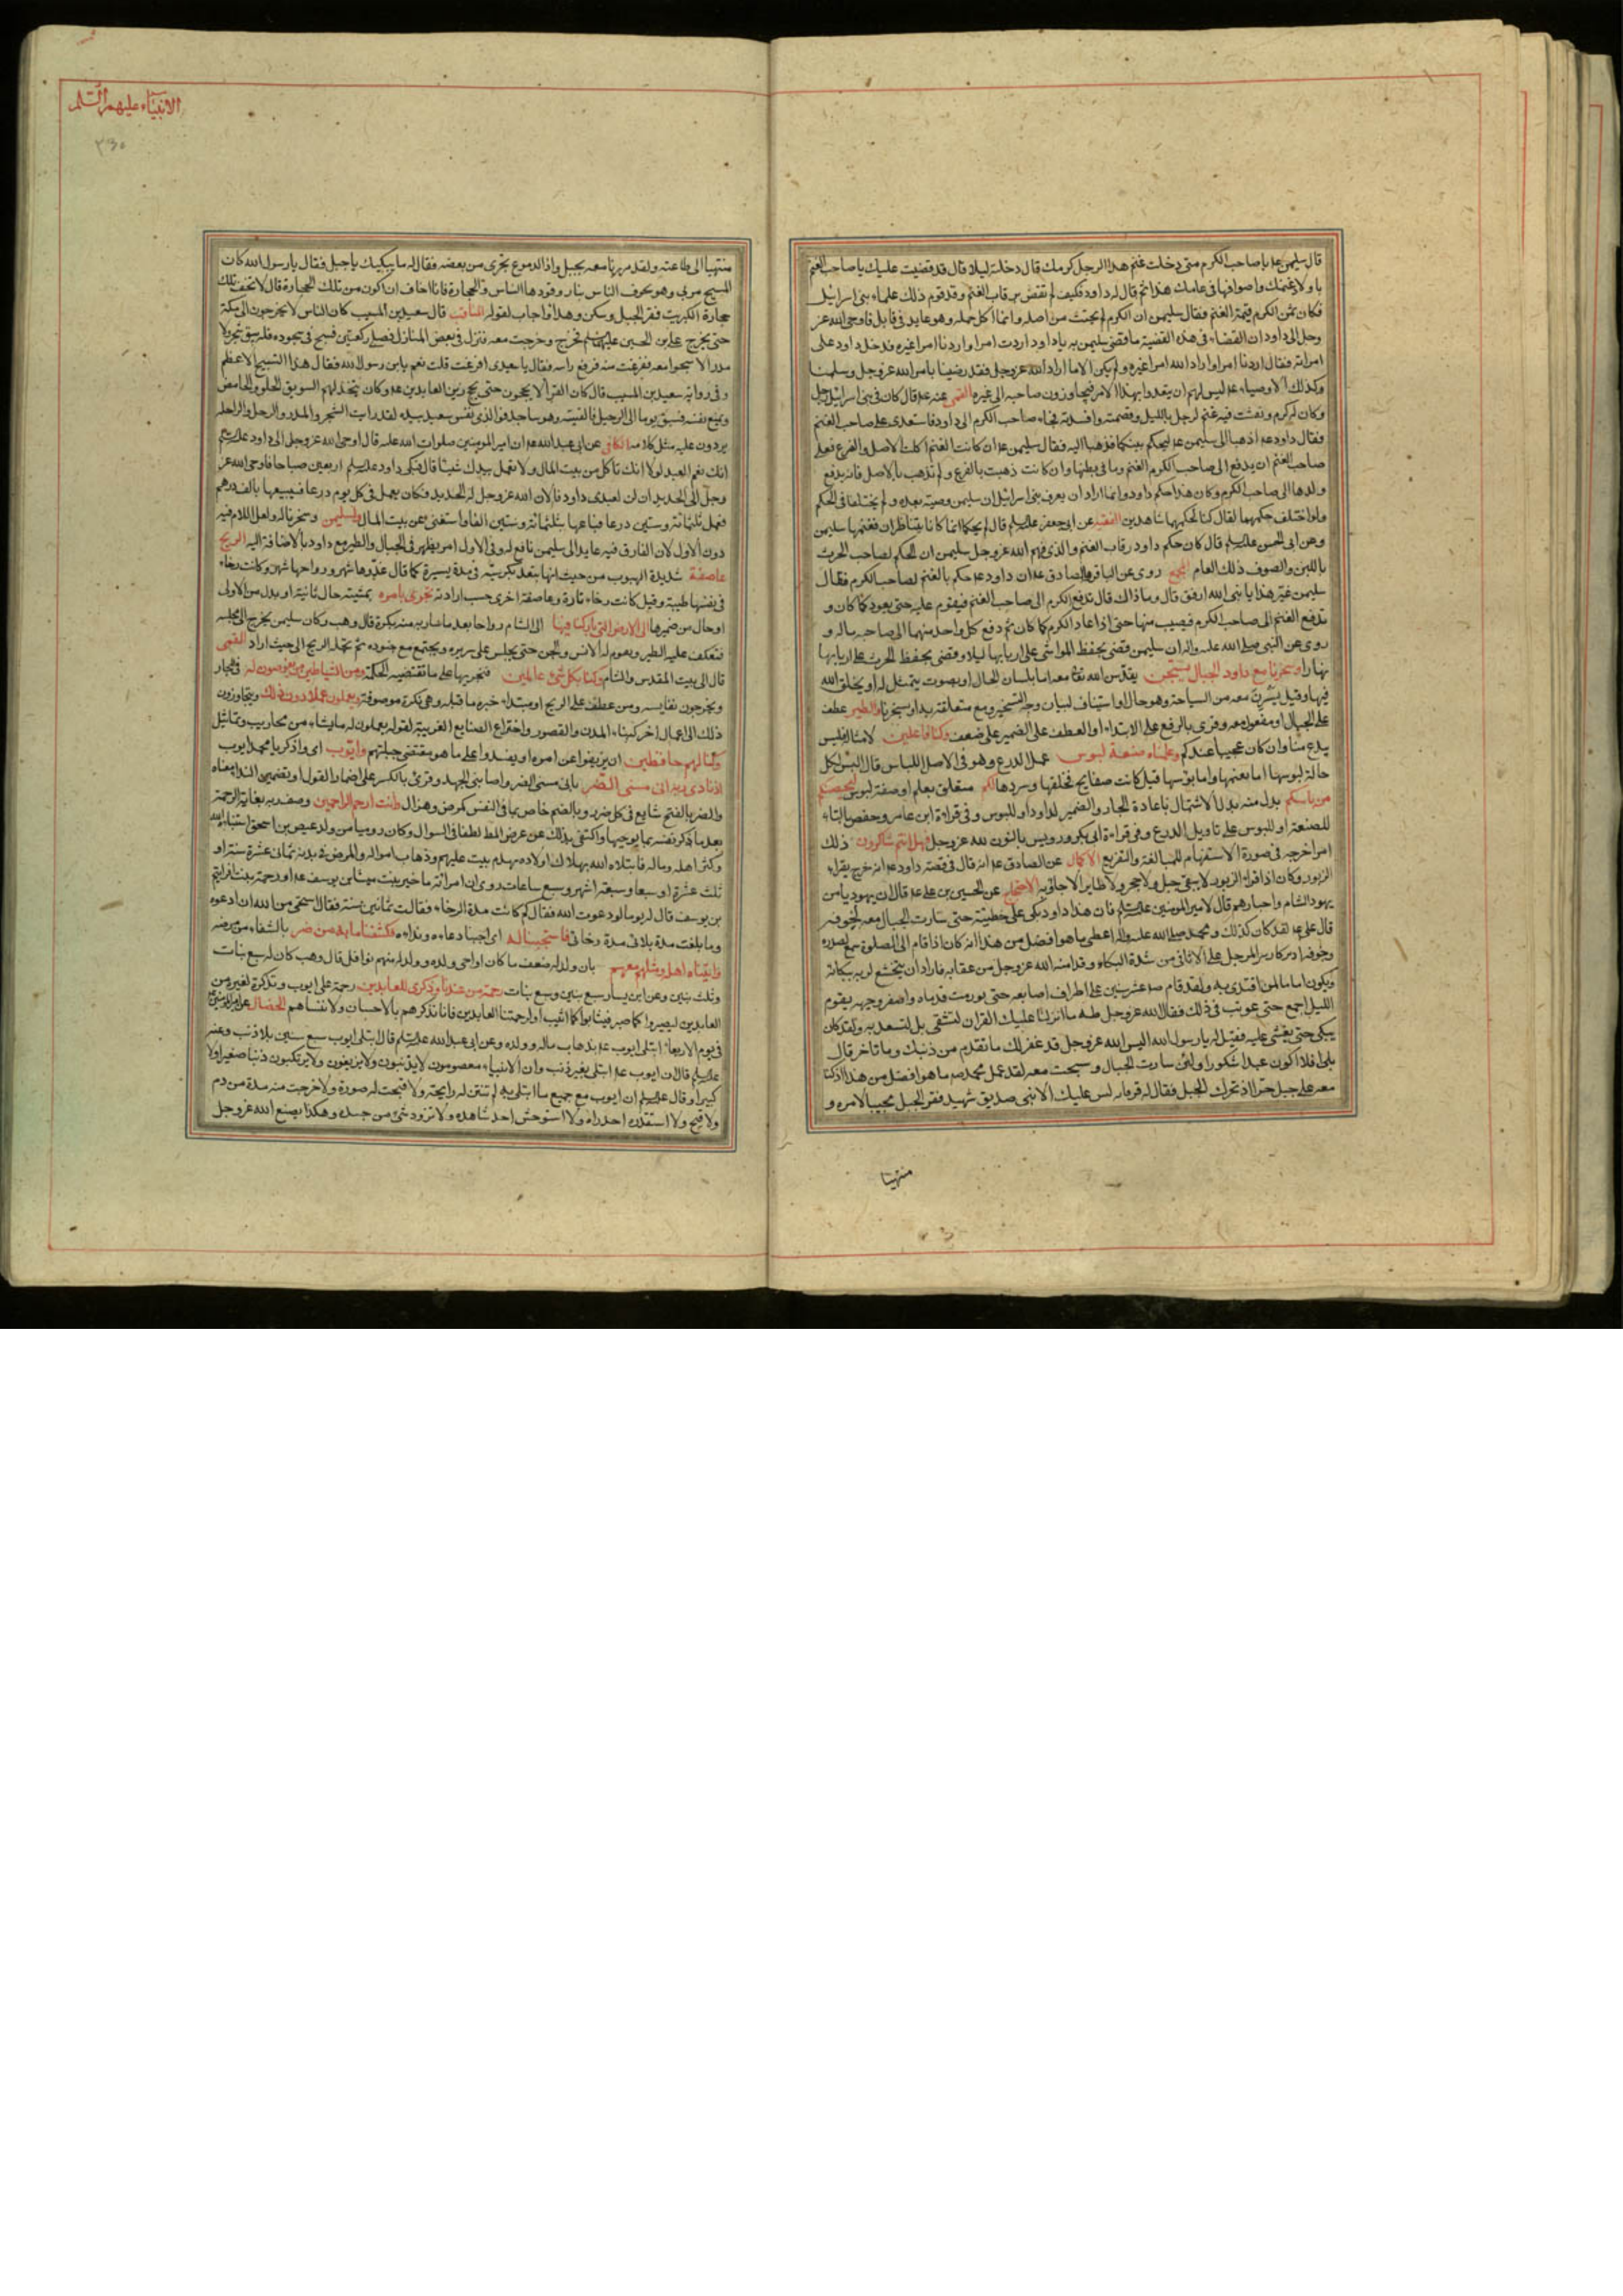 قال سليمن عه يا صاحب الكرم متى دخلت غنم هذا الرجل كرمك قال دخلته ليلا قال قد قضيت عليك يا صاحب الغنم
باولاد غنمك واصوافها فى عامك هذا ثم قال له داود فكيف لم تقض برقاب الغنم وقد قوم ذلك علماء بنى اسرائيل
فكان ثمن الكرم قيمة الغنم فقال سليمن ان الكرم لم يجتث من اصله وانما اكل حمله وهو عايد فى قابل فاوحى الله عز
وجل الى داود ان القضاء فى هذه القضية ما قضى سليمن به يا داود اردت امرا واردنا امرا غيره فدخل داود على
امراته فقال اردنا امرا واراد الله امرا غيره ولم يكن الا ما اراد الله عز وجل فقد رضينا بامر الله عز وجل وسلمنا
وكذلك الاوصياء عه ليس لهم ان يتعدوا بهذا الامر فيجاوزون صاحبه الى غيره القمى عنه عه قال كان فى بنى اسرائيل رجل
وكان له كرم ونفشت فيه غنم لرجل بالليل وقضمته وافسدته فجاء صاحب الكرم الى داود فاستعدى على صاحب الغنم
فقال داود عه اذهبا الى سليمن عه ليحكم بينكما فذهبا اليه فقال سليمن عه ان كانت الغنم اكلت الاصل والفرع فعلى
صاحب الغنم ان يدفع الى صاحب الكرم الغنم وما فى بطنها وان كانت ذهبت بالفرع ولم تذهب بالاصل فانه يدفع
ولدها الى صاحب الكرم وكان هذا حكم داود وانما اراد ان يعرف بنى اسرائيل ان سليمن وصيه بعده ولم يختلفا فى الحكم
ولو اختلف حكمهما لقال كنا لحكمهما شاهدين الفقيه عن ابى جعفر عليه السلم قال لم يحكما انما كانا يتناظران ففهمها سليمن
وعن ابى الحسن عليه السلم قال كان حكم داود رقاب الغنم والذى فهم الله عز وجل سليمن ان الحكم لصاحب الحرث
باللبن والصوف ذلك العام المجمع روى عن الباقر والصادق عه ان داود عه حكم بالغنم لصاحب الكرم فقال
سليمن غير هذا يا نبى الله ارفق قال وما ذاك قال تدفع الكرم الى صاحب الغنم فيقوم عليه حتى يعود كما كان و
تدفع الغنم الى صاحب الكرم فيصيب منها حتى اذا عاد الكرم كما كان ثم دفع كل واحد منهما الى صاحبه ماله و
روى عن النبى صلى الله عليه واله ان سليمن قضى بحفظ المواشى على اربابها ليلا وقضى بحفظ الحرث على اربابها
نهارا وسخرنا مع داود الجبال يسبحن يقدسن الله تعا معه اما بلسان الحال او بصوت يتمثل له او يخلق الله
فيها وقيل يسرن معه من السباحة وهو حال او استيناف لبيان وجه التسخير ومع متعلقة به او بسخرنا والطير عطف
على الجبال او مفعول معه وقرى بالرفع على الابتداء او العطف على الضمير على ضعف وكنا فاعلين لامثاله فليس
ببدع منا وان كان عجيبا عندكم وعلمناه صنعة لبوس عمل الدرع وهو فى الاصل اللباس قال البس لكل
حالة لبوسها اما نعيمها واما بؤسها قيل كانت صفايح فحلقها وسردها لكم متعلق بعلم او صفة لبوس لتحصنكم
من باسكم بدل منه بدل الاشتمال باعادة الجار والضمير لداود او للبوس وفى قراءة ابن عامر وحفص بالتاء
للصنعة او للبوس على تاويل الدرع وفى قراءة ابى بكر ورويس بالنون لله عز وجل فهل انتم شاكرون ذلك
امر اخرجه فى صورة الاستفهام للمبالغة والتقريع الاكمال عن الصادق عه انه قال فى قصة داود عه انه خرج يقراء
الزبور وكان اذا قراء الزبور لا يبقى جبل ولا حجر ولا طاير الا جاوبه الاحتجاج عن الحسين بن على عه قال ان يهوديا من
يهود الشام واحبارهم قال لامير المومنين عليه السلم فان هذا داود بكى على خطيئته حتى سارت الجبال معه لخوفه
قال على عه لقد كان كذلك ومحمد صلى الله عليه واله اعطى ما هو افضل من هذا انه كان اذا قام الى الصلوة سمع لصدره
وجوفه ازيز كازيز المرجل على الاثافى من شدة البكاء وقد امنه الله عز وجل من عقابه فاراد ان يتخشع لربه ببكائه
ويكون اماما لمن اقتدى به ولقد قام صه عشر سنين على اطراف اصابعه حتى تورمت قدماه واصفر وجهه يقوم
الليل اجمع حتى عوتب فى ذلك فقال الله عز وجل طه ما انزلنا عليك القران لتشقى بل لتسعد به ولقد كان
يبكى حتى يغشى عليه فقيل له يا رسول الله اليس الله عز وجل قد غفر لك ما تقدم من ذنبك وما تاخر قال
بلى افلا اكون عبدا شكورا ولئن سارت الجبال وسبحت معه لقد عمل محمد صه ما هو افضل من هذا اذ كنا
معه على جبل حرا اذ تحرك الجبل فقال له قر فانه ليس عليك الا نبى صديق شهيد فقر الجبل مجيبا لامره و
منتهيا
الانبياء عليهم السلم
منتهيا الى طاعته ولقد مررنا معه بجبل واذا الدموع تجرى من بعضه فقال له ما يبكيك يا جبل فقال يا رسول الله كان
المسيح مر بى وهو يخوف الناس بنار وقودها الناس والحجارة فانا اخاف ان اكون من تلك الحجارة قال لا تخف تلك
حجارة الكبريت فقر الجبل وسكن وهدا واجاب لقوله المناقب قال سعيد بن المسيب كان الناس لا يخرجون الى مكة
حتى يخرج على بن الحسين عليهما السلم فخرج وخرجت معه فنزل فى بعض المنازل فصلى ركعتين فسبح فى سجوده فلم يبق شجر ولا
مدر الا سبحوا معه ففزعت منه فرفع راسه فقال يا سعيد افزعت قلت نعم يا بن رسول الله فقال هذا التسبيح الاعظم
وفى رواية سعيد بن المسيب قال كان القرا لا يحجون حتى يحج زين العابدين عه وكان يتخذ لهم السويق الحلو والحامض
ويمنع نفسه فسبق يوما الى الرحيل فالفيته وهو ساجد فوالذى نفس سعيد بيده لقد رايت الشجر والمدر والرحل والراحلة
يردون عليه مثل كلامه الكافى عن ابى عبد الله عه ان امير المومنين صلوات الله عليه قال اوحى الله عز وجل الى داود عليه السلم
انك نعم العبد لولا انك تاكل من بيت المال ولا تعمل بيدك شيئا قال فبكى داود عليه السلم اربعين صباحا فاوحى الله عز
وجل الى الحديد ان لن لعبدى داود فالان الله عز وجل له الحديد فكان يعمل فى كل يوم درعا فيبيعها بالف درهم
فعمل ثلثمائة وستين درعا فباعها بثلثمائة وستين الفا واستغنى عن بيت المال ولسليمن وسخرنا له ولعل اللام فيه
دون الاول لان الخارق فيه عايد الى سليمن نافع له وفى الاول امر يظهر فى الجبال والطير مع داود بالاضافة اليه الريح
عاصفة شديدة الهبوب من حيث انها تبعد بكرسيه فى مدة يسيرة كما قال غدوها شهر ورواحها شهر وكانت رخاء
فى نفسها طيبة وقيل كانت رخاء تارة وعاصفة اخرى حسب ارادته تجرى بامره بمشيته حال ثانية او بدل من الاولى
او حال من ضميرها الى الارض التى باركنا فيها الى الشام رواحا بعد ما سار به منه بكرة قال وهب وكان سليمن يخرج الى مجلسه
فتعكف عليه الطير ويقوم له الانس والجن حتى يجلس على سريره ويجتمع مع جنوده ثم تحمله الريح الى حيث اراد القمى
قال الى بيت المقدس والشام وكنا بكل شئ عالمين فنجريها على ما تقتضيه الحكمة ومن الشياطين من يغوصون له فى البحار
ويخرجون نفايسه ومن عطف على الريح او مبتداء خبره ما قبله وهى نكرة موصوفة ويعملون عملا دون ذلك ويتجاوزون
ذلك الى اعمال اخر كبناء المدن والقصور واختراع الصنايع الغريبة لقوله يعملون له ما يشاء من محاريب وتماثيل
وكنا لهم حافظين ان يزيغوا عن امره او يفسدوا على ما هو مقتضى جبلتهم وايوب اى واذكر يا محمد ايوب
اذ نادى ربه انى مسنى الضر بانى مسنى الضر واصابنى الجهد وقرئ بالكسر على اضمار القول او تضمين النداء معناه
والضر بالفتح شايع فى كل ضرر وبالضم خاص بما فى النفس كمرض وهزال وانت ارحم الراحمين وصف ربه بغاية الرحمة
بعد ما ذكر نفسه بما يوجبها واكتفى بذلك عن عرض المطلب لطفا فى السوال وكان روميا من ولد عيص بن اسحق استنباه الله
وكثر اهله وماله فابتلاه الله بهلاك اولاده بهدم بيت عليهم وذهاب امواله والمرض فى بدنه ثمانى عشرة سنة او
ثلث عشرة او سبعا وسبعة اشهر وسبع ساعات روى ان امراته ماخير بنت ميشا بن يوسف عه او رحمة بنت افرائيم
بن يوسف قال له يوما لو دعوت الله فقال كم كانت مدة الرخاء فقالت ثمانين سنة فقال استحى من الله ان ادعوه
وما بلغت مدة بلائى مدة رخائى فاستجبنا له اى اجبنا دعاءه ونداءه فكشفنا ما به من ضر بالشفاء من مرضه
واتيناه اهله ومثلهم معهم بان ولد له ضعف ما كان او احيى ولده وولد له منهم نوافل قال وهب كان له سبع بنات
وثلث بنين وعن ابن يسار سبع بنين وسبع بنات رحمة من عندنا وذكرى للعابدين رحمة على ايوب وتذكرة لغيره من
العابدين ليصبروا كما صبر فيثابوا كما اثيب او لرحمتنا العابدين فانا نذكرهم بالاحسان ولا ننساهم الخصال عن امير المومنين
فى يوم الاربعاء ابتلى ايوب عه بذهاب ماله وولده وعن ابى عبد الله عليه السلم قال ابتلى ايوب سبع سنين بلا ذنب وعنه
عليه السلم قال ان ايوب عه ابتلى بغير ذنب وان الانبياء معصومون لا يذنبون ولا يزيغون ولا يرتكبون ذنبا صغيرا ولا
كبيرا وقال عليه السلم ان ايوب مع جميع ما ابتلى به لم تنتن له رايحة ولا قبحت له صورة ولا خرجت منه مدة من دم
ولا قيح ولا استقذره احد راه ولا استوحش احد شاهده ولا تزود شئ من جسده وهكذا يصنع الله عز وجل